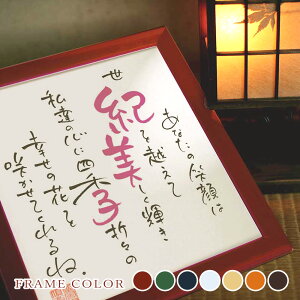 あなたの笑顔は
世紀を越えて
美しく輝き
四季折々の
私達の心に
幸せの花を
咲かせてくれるね。
FRAME COLOR